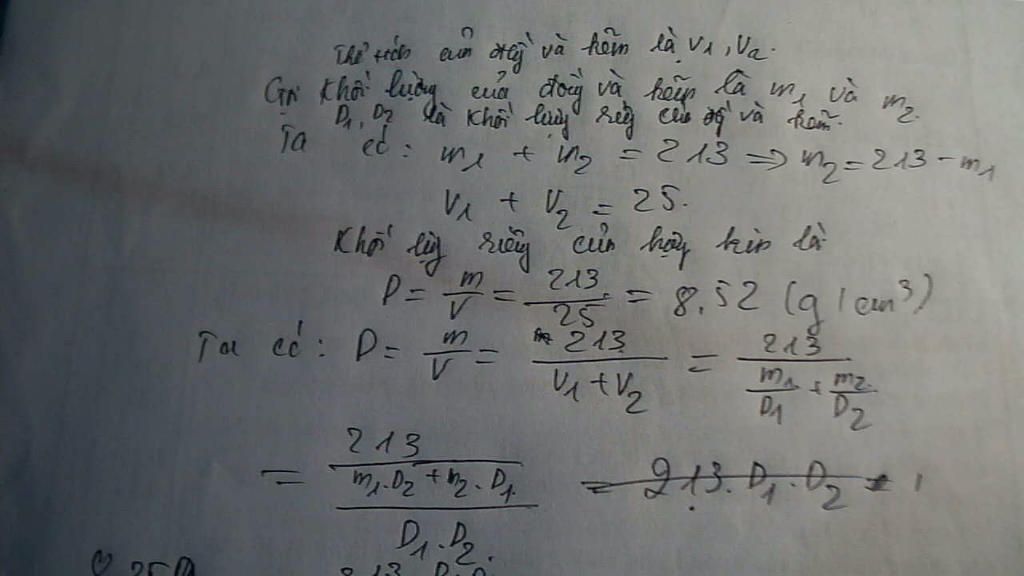 Thể tích của đồng và kẽm là V₁, V₂.
Gọi khối lượng của đồng và kẽm là m₁ và m₂.
D₁, D₂ là khối lượng riêng của đồng và kẽm.
Ta có: m₁ + m₂ = 213 => m₂ = 213 - m₁
V₁ + V₂ = 25.
Khối lượng riêng của hợp kim là
D = m/V = 213/25 = 8,52 (g/cm³)
Ta có: D = m/V = 213/(V₁+V₂) = 213/(m₁/D₁ + m₂/D₂)
= 213/((m₁.D₂ + m₂.D₁)/(D₁.D₂)) = 213.D₁.D₂